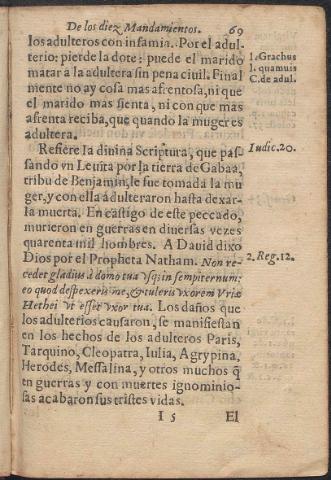 De los diez Mandamientos. 69
los adulteros con infamia. Por el adul-
terio; pierde la dote: puede el marido
matar a la adultera sin pena ciuil. Final
mente no ay cosa mas afrentosa, ni que
el marido mas sienta, ni con que mas
afrenta reciba, que quando la muger es
adultera.
I. Grachus
I. quamuis
C. de adul.
Refiere la diuina Scriptura, que pas-
sando vn Leuita por la tierra de Gabaa,
tribu de Benjamin, le fue tomada la mu
ger, y con ella adulteraron hasta dexar-
la muerta. En castigo de este peccado,
murieron en guerras en diuersas vezes
quarenta mil hombres. A Dauid dixo
Dios por el Propheta Natham. Non re-
cedet gladius à domo tua vsq; in sempiternum;
eo quod despexeris me, & tuleris vxorem Vriæ
Hethei vt esset vxor tua. Los daños que
los adulterios causaron, se manifiestan
en los hechos de los adulteros Paris,
Tarquino, Cleopatra, Iulia, Agrypina,
Herodes, Messalina, y otros muchos q̃
en guerras y con muertes ignominio-
sas acabaron sus tristes vidas.
Iudic. 20.
2. Reg. 12.
I 5 El